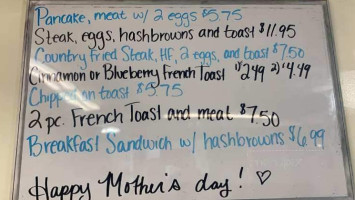 Pancake, meat w/ 2 eggs $5.75
Steak, eggs, hashbrowns and toast $11.95
Country Fried Steak, HF, 2 eggs, and toast $7.50
Cinnamon or Blueberry French Toast 1) $2.49 2) $4.49
Chipped on toast $5.75
2 pc. French Toast and meat $7.50
Breakfast Sandwich w/ hashbrowns $6.99
Happy Mother's day! ♡